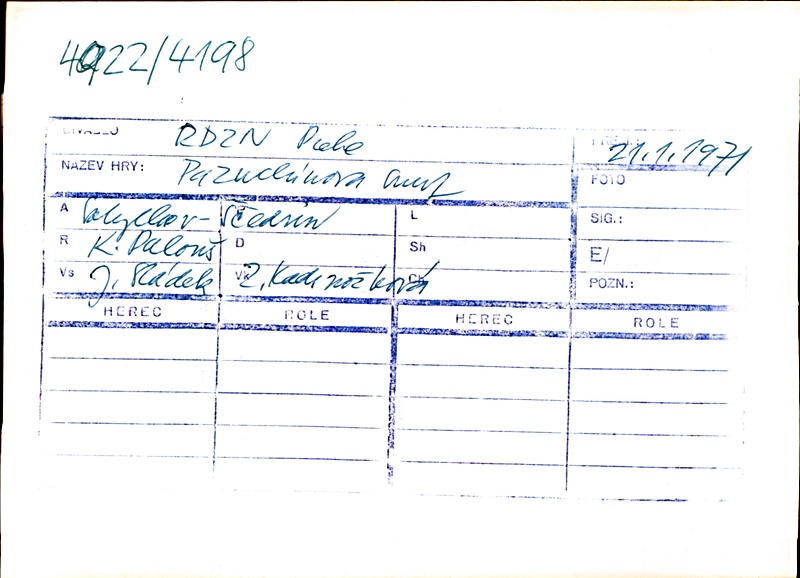 4922/4198
DIVADLO RDZN Praha 21.1.1971
NÁZEV HRY: Pazuchinova smrt FOTO
A Saltykov-Ščedrin L SIG.:
R K. Palouš D Sh E/
Vs J. Sládek Vk Z. Kadrnožková Ch POZN.:
HEREC ROLE HEREC ROLE